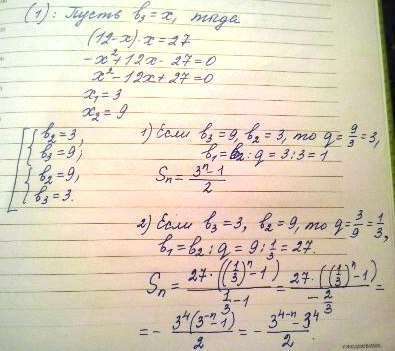 (1): Пусть b₃ = x, тогда
(12-x)·x = 27
-x² + 12x - 27 = 0
x² - 12x + 27 = 0
x₁ = 3
x₂ = 9
[{b₂ = 3,
b₃ = 9;
{b₂ = 9,
b₃ = 3.
1) Если b₃ = 9, b₂ = 3, то q = 9/3 = 3,
b₁ = b₂ : q = 3 : 3 = 1
Sₙ = (3ⁿ - 1)/2
2) Если b₃ = 3, b₂ = 9, то q = 3/9 = 1/3,
b₁ = b₂ : q = 9 : 1/3 = 27.
Sₙ = (27·((1/3)ⁿ - 1))/(1/3 - 1) = (27·((1/3)ⁿ - 1))/(-2/3) =
= - (3⁴(3⁻ⁿ - 1))/2 = - (3⁴⁻ⁿ - 3⁴)/2